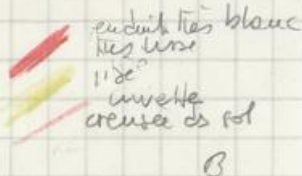 enduit très blanc
très lisse
"idᵒ"
cuvette
creusée ds sol
B